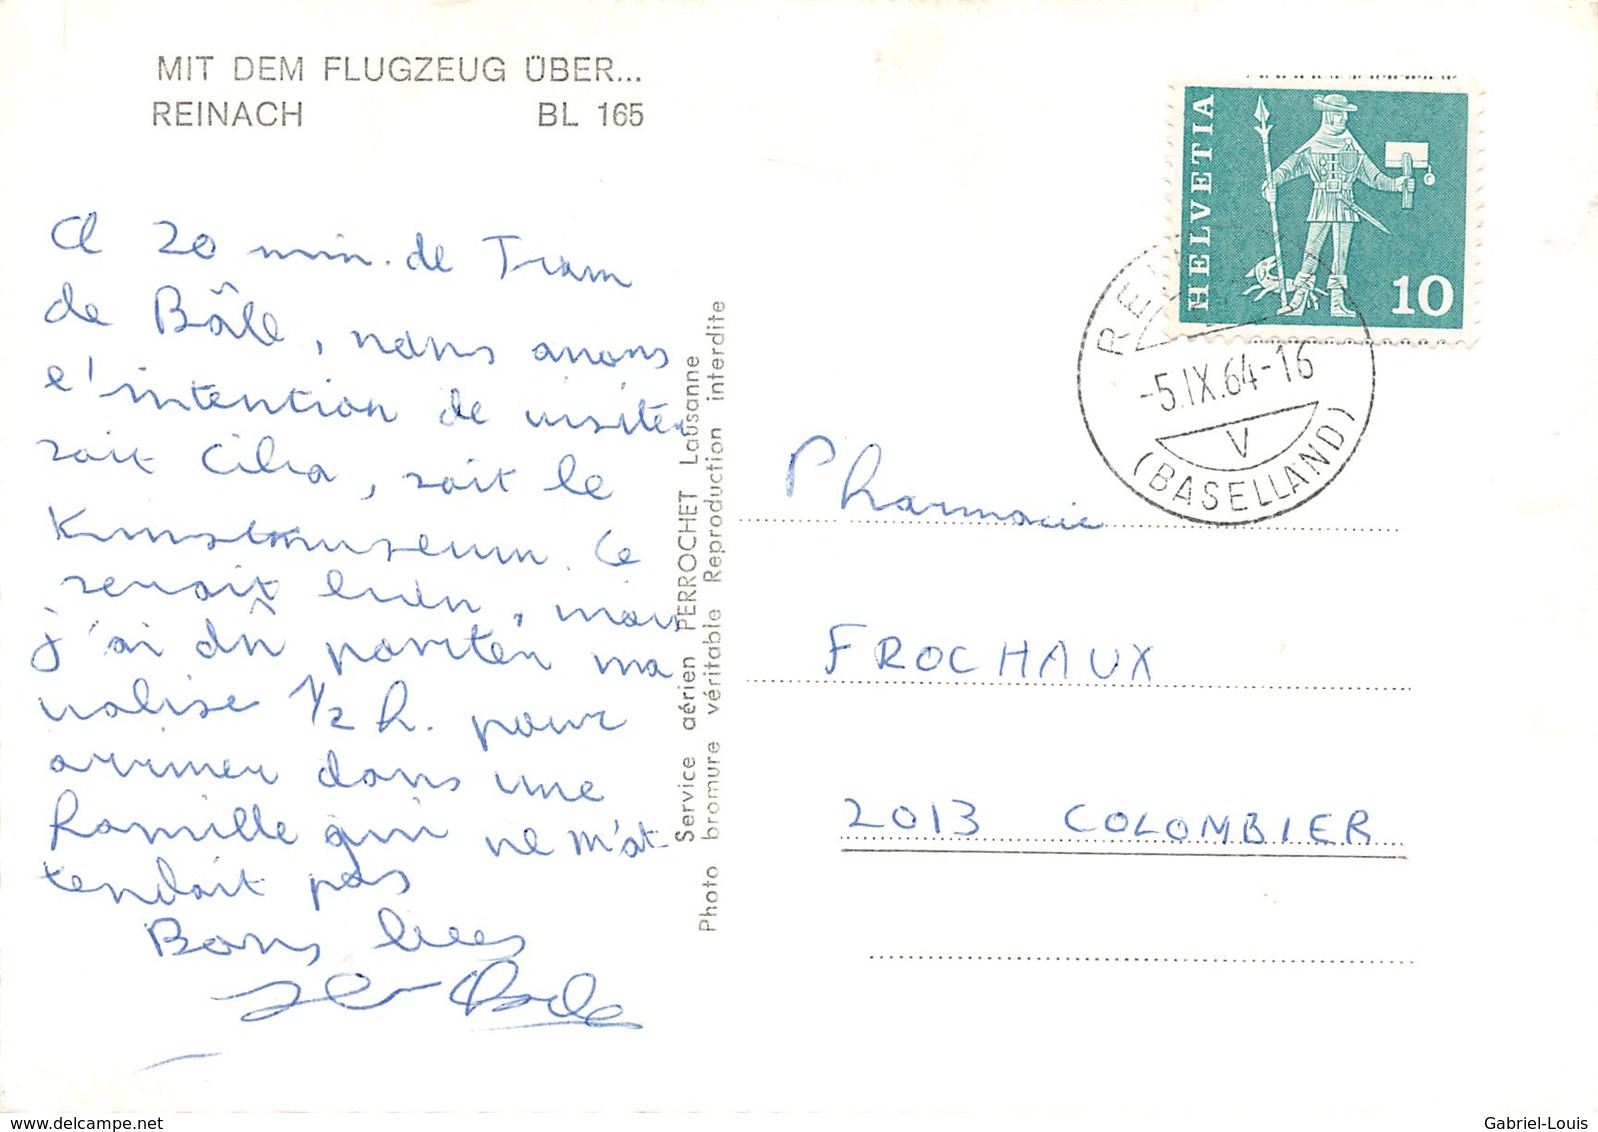 MIT DEM FLUGZEUG ÜBER...
REINACH BL 165
A 20 min. de Tram
de Bâle, nous avons
l'intention de visiter
soit Ciba, soit le
Kunstmuseum. Ce
serait bien, mais
j'ai dû porter ma
valise 1/2 h. pour
arriver dans une
famille qui ne m'at-
tendait pas
Bons
Service aérien PERROCHET Lausanne
Photo bromure véritable Reproduction interdite
HELVETIA
10
-5.IX.64-16
V
(BASELLAND)
Pharmacie
FROCHAUX
2013 COLOMBIER
www.delcampe.net
Gabriel-Louis